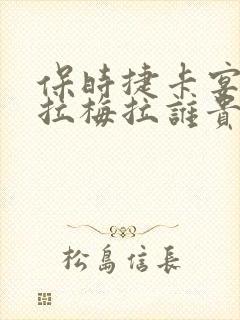 保時捷卡宴
拉梅拉誰貴
松島信長